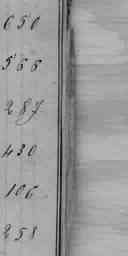 650
566
287
430
106
258